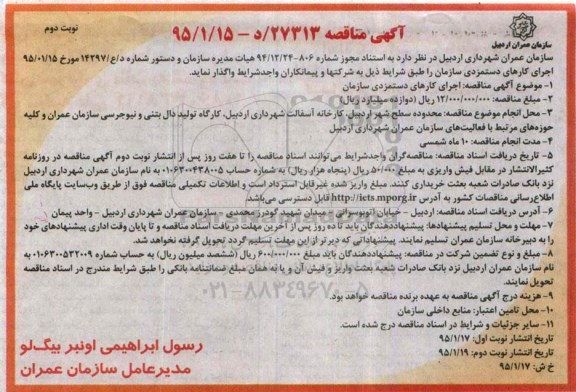 نوبت دوم
آگهی مناقصه ۲۷۳۱۳/د - ۹۵/۱/۱۵
سازمان عمران اردبیل
سازمان عمران شهرداری اردبیل در نظر دارد به استناد مجوز شماره ۸۰۶-۹۴/۱۲/۲۴ هیات مدیره سازمان و دستور شماره د/ع/۱۴۲۹۷ مورخ ۹۵/۰۱/۱۵
اجرای کارهای دستمزدی سازمان را طبق شرایط ذیل به شرکتها و پیمانکاران واجدشرایط واگذار نماید.
۱- موضوع آگهی مناقصه: اجرای کارهای دستمزدی سازمان
۲- مبلغ مناقصه: ۱۲/۰۰۰/۰۰۰/۰۰۰ ریال (دوازده میلیارد ریال)
۳- محل انجام موضوع مناقصه: محدوده سطح شهر اردبیل، کارخانه آسفالت شهرداری اردبیل، کارگاه تولید دال بتنی و نیوجرسی سازمان عمران و کلیه
حوزه‌های مرتبط با فعالیت‌های سازمان عمران شهرداری اردبیل
۴- مدت انجام مناقصه: ۱۰ ماه شمسی
۵- تاریخ دریافت اسناد مناقصه: مناقصه‌گران واجدشرایط می‌توانند اسناد مناقصه را تا هفت روز پس از انتشار نوبت دوم آگهی مناقصه در روزنامه
کثیرالانتشار در مقابل فیش واریزی به مبلغ ۵۰/۰۰۰ ریال (پنجاه هزار ریال) به شماره حساب ۰۱۰۶۳۰۰۴۳۸۰۰۵ به نام سازمان عمران شهرداری اردبیل
نزد بانک صادرات شعبه بعثت خریداری کنند. مبلغ واریز شده غیرقابل استرداد است و اطلاعات تکمیلی مناقصه فوق از طریق وب‌سایت پایگاه ملی
اطلاع‌رسانی مناقصات کشور به آدرس http://iets.mporg.ir قابل دسترسی می‌باشد.
۶- آدرس دریافت اسناد مناقصه: اردبیل - خیابان اتوبوسرانی - میدان شهید گودرز محمدی - سازمان عمران شهرداری اردبیل - واحد پیمان
۷- مهلت و محل تسلیم پیشنهادها: پیشنهاددهندگان باید تا ده روز پس از آخرین مهلت دریافت اسناد مناقصه و تا پایان وقت اداری پیشنهادهای خود
را به دبیرخانه سازمان عمران تسلیم نمایند. پیشنهاداتی که دیرتر از این مهلت تسلیم گردد تحویل گرفته نخواهد شد.
۸- مبلغ و نوع تضمین شرکت در مناقصه: پیشنهاددهندگان باید مبلغ ۶۰۰/۰۰۰/۰۰۰ ریال (ششصد میلیون ریال) به حساب شماره ۰۱۰۶۳۰۰۵۳۲۰۰۹ به
نام سازمان عمران اردبیل نزد بانک صادرات شعبه بعثت واریز و فیش آن و یا به همان مبلغ ضمانتنامه بانکی را طبق شرایط مندرج در اسناد مناقصه
تحویل نمایند.
۹- هزینه درج آگهی مناقصه به عهده برنده مناقصه خواهد بود.
۱۰- محل تامین اعتبار: منابع داخلی سازمان
۱۱- سایر جزئیات و شرایط در اسناد مناقصه درج شده است.
تاریخ انتشار نوبت اول: ۹۵/۱/۱۷
تاریخ انتشار نوبت دوم: ۹۵/۱/۱۹
خ ش: ۹۵/۱/۱۷
رسول ابراهیمی اونبر بیگ‌لو
مدیرعامل سازمان عمران
۰۲۱-۸۸۳۴۹۶۷۰-۵